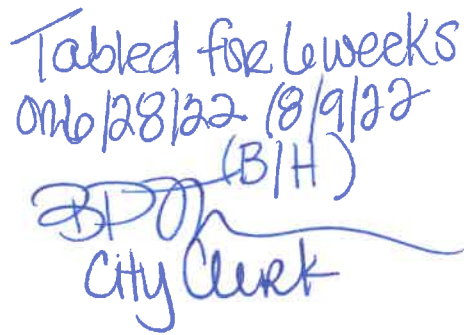 Tabled for 6 weeks
on 6/28/22 (8/9/22
(B/H)
City Clerk